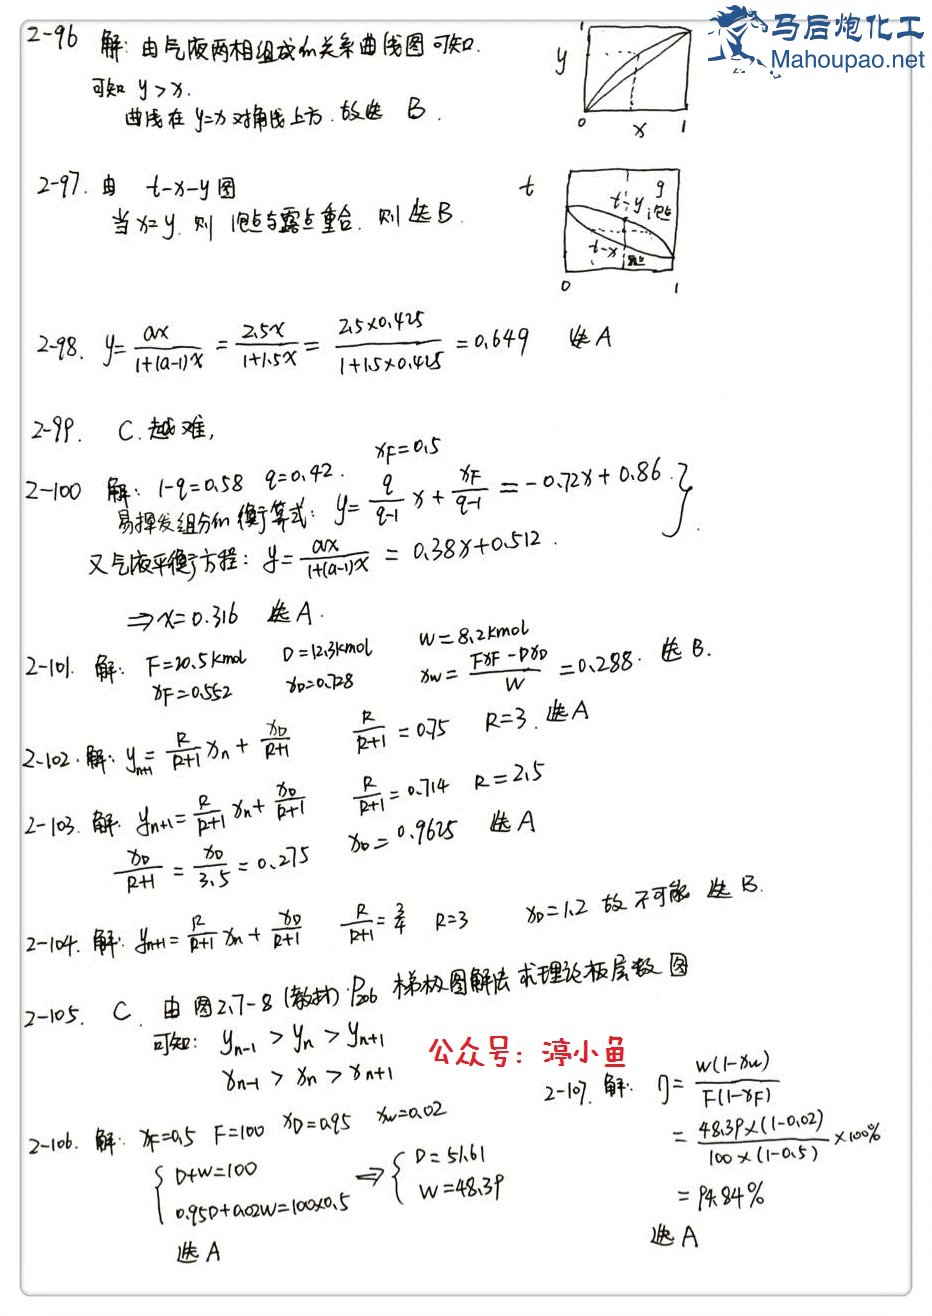 马后炮化工
Mahoupao.net
2-96 解: 由气液两相组成的关系曲线图可知.
可知 y>x.
曲线在 y=x 对角线上方. 故选 B.
1
y
0 x 1
2-97. 由 t-x-y图
当x=y. 则 泡点与露点重合. 则选B.
t
g
t-y 泡点
t-x 露点
0 1
2-98. y= ax/(1+(a-1)x) = 2.5x/(1+1.5x) = (2.5×0.425)/(1+1.5×0.425) =0.649 选A
2-99. C. 越难,
2-100 解: 1-q=0.58 q=0.42. xF=0.5
易挥发组分的衡算式: y= q/(q-1) x + xF/(q-1) = -0.72x+0.86 }
又气液平衡方程: y= ax/(1+(a-1)x) = 0.38x+0.512.
⇒x=0.316 选A.
2-101. 解: F=20.5kmol D=12.3kmol W=8.2kmol
xF=0.552 xD=0.728 xw= (FxF-DxD)/W =0.288. 选B.
2-102. 解: yn+1= R/(R+1) xn + xD/(R+1) R/(R+1) =0.75 R=3. 选A
2-103. 解: yn+1= R/(R+1) xn+ xD/(R+1) R/(R+1) =0.714 R=2.5
xD/(R+1) = xD/3.5 =0.275 xD=0.9625 选A
2-104. 解: yn+1= R/(R+1) xn + xD/(R+1) R/(R+1) = 3/4 R=3 xD=1.2 故不可能 选B.
2-105. C. 由图2.7-8 (教材) P206 梯级图解法求理论板层数图
可知: yn-1 > yn > yn+1
xn-1 > xn > xn+1
公众号：渟小鱼
2-106. 解: xF=0.5 F=100 xD=0.95 xw=0.02
{ D+W=100
0.95D+0.02W=100×0.5
⇒ { D=51.61
W=48.39
选A
2-107. 解: η= W(1-xw)/F(1-xF)
= 48.39×(1-0.02)/100×(1-0.5) ×100%
=94.84%
选A